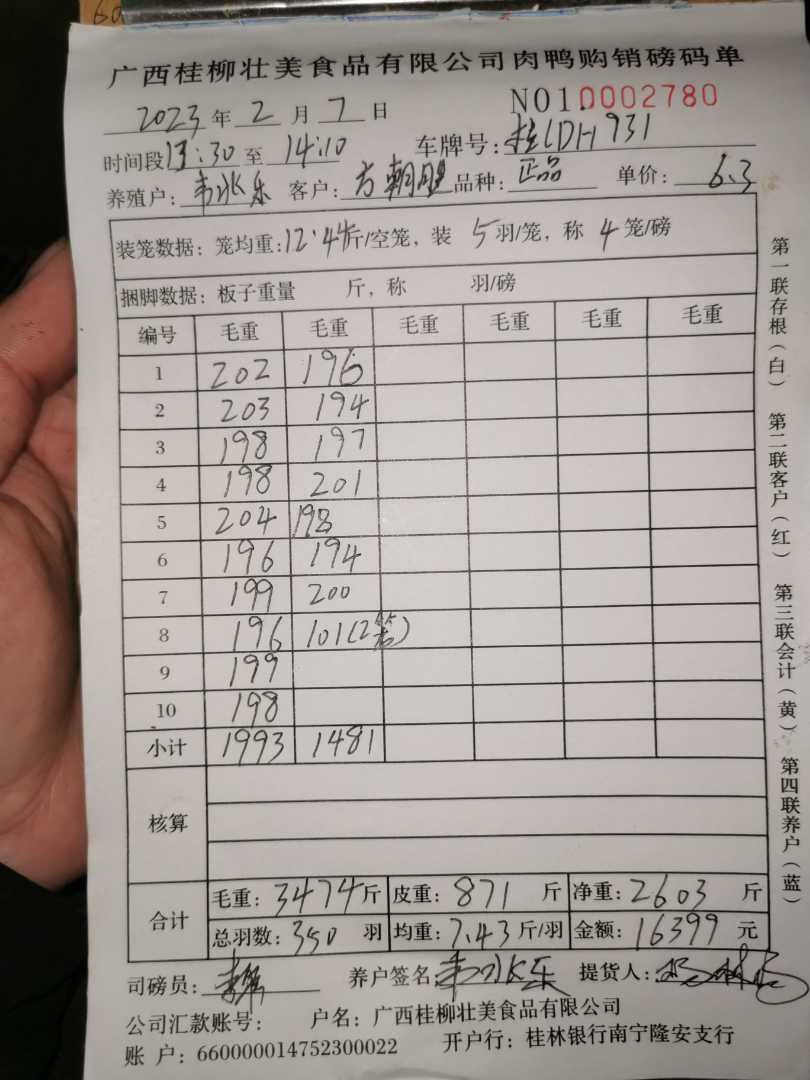 广西桂柳壮美食品有限公司肉鸭购销磅码单
2023年2月7日 NO1.0002780
时间段13:30至14:10 车牌号:桂CDH931
养殖户:韦冰乐 客户:方朝 品种:正品 单价:6.3
装笼数据:笼均重:12.44斤/空笼,装5羽/笼,称4笼/磅
捆脚数据:板子重量 斤,称 羽/磅
编号 毛重 毛重 毛重 毛重 毛重 毛重
1 202 196
2 203 194
3 198 197
4 198 201
5 204 198
6 196 194
7 199 200
8 196 101(2笼)
9 199
10 198
小计 1993 1481
核算
合计 毛重:3474斤 皮重:871斤 净重:2603斤
总羽数:350羽 均重:7.43斤/羽 金额:16399元
司磅员: 养户签名:韦冰乐 提货人:
公司汇款账号: 户名:广西桂柳壮美食品有限公司
账 户:660000014752300022 开户行:桂林银行南宁隆安支行
第一联存根(白) 第二联客户(红) 第三联会计(黄) 第四联养户(蓝)